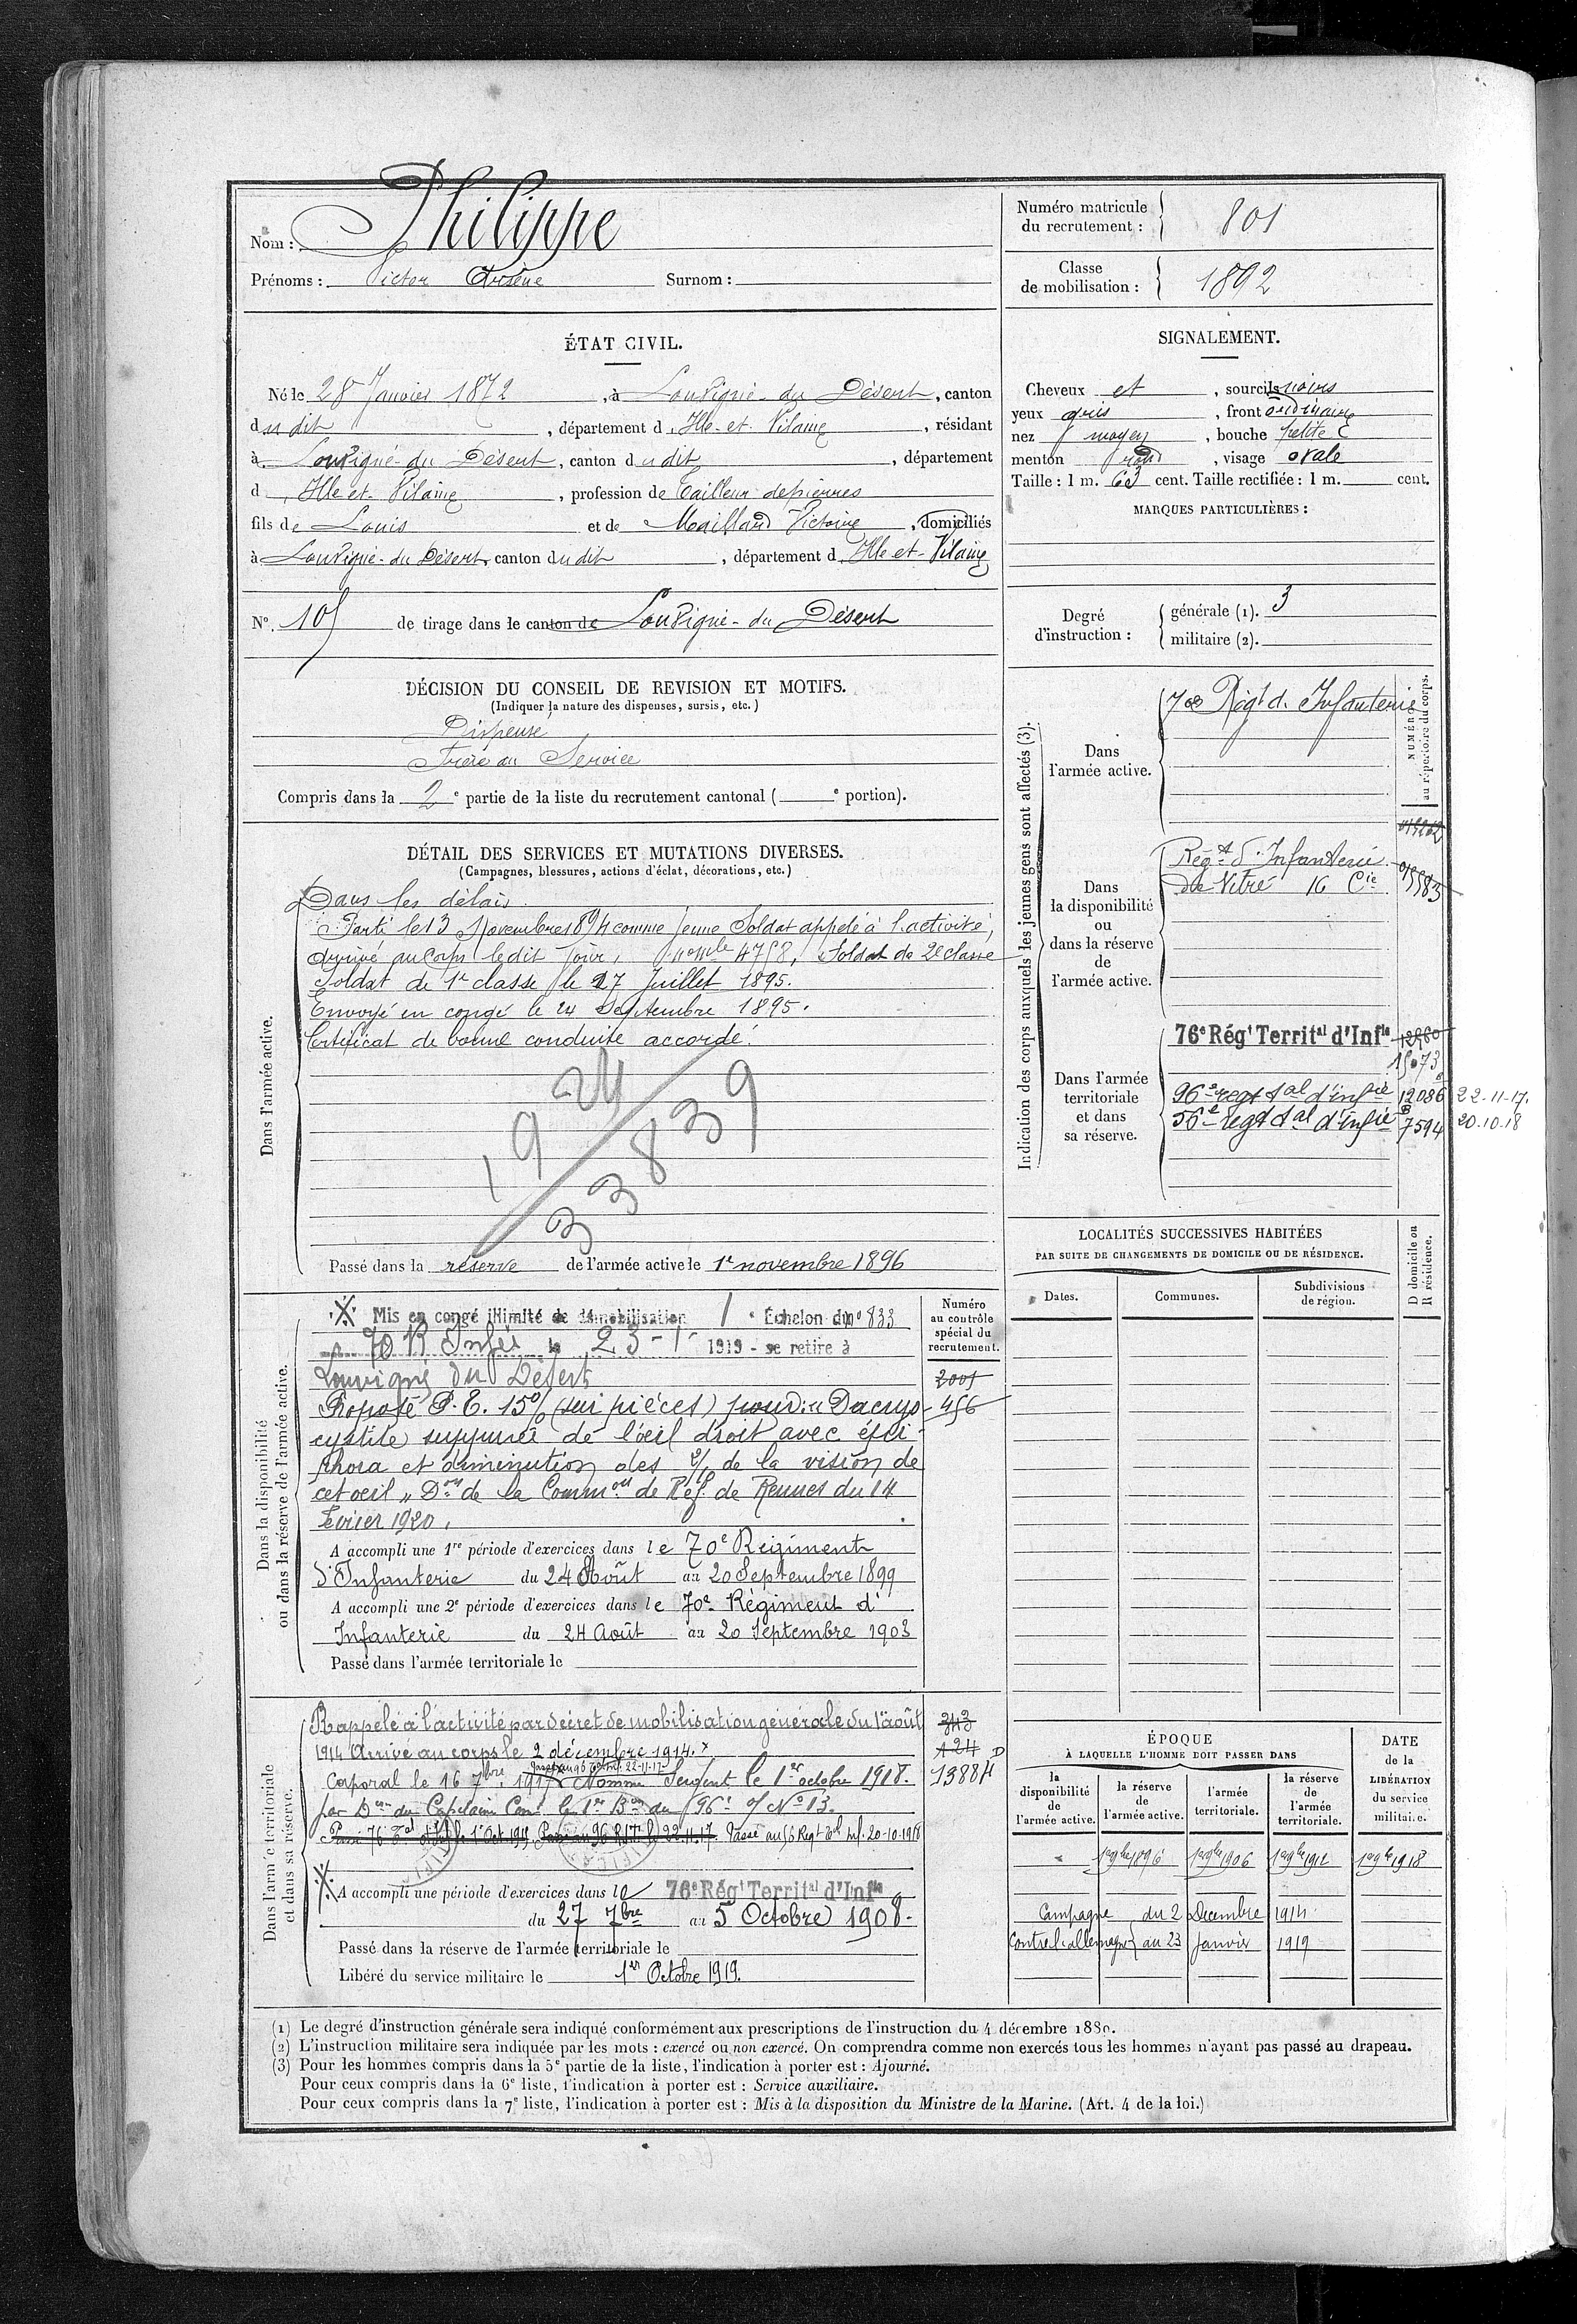 Nom : Philippe
Prénoms : Victor Arsène Surnom :
Numéro matricule du recrutement : 801
Classe de mobilisation : 1892
ÉTAT CIVIL.
Né le 28 Janvier 1872, à Louvigné-du Désert, canton
du dit, département d'Ille-et-Vilaine, résidant
à Louvigné-du Désert, canton du dit, département
d'Ille-et-Vilaine, profession de Tailleur de pierres
fils de Louis et de Maillard Victoire, domiciliés
à Louvigné-du Désert, canton du dit, département d'Ille-et-Vilaine
N° 105 de tirage dans le canton de Louvigné-du Désert
SIGNALEMENT.
Cheveux et, sourcils noirs
yeux gris, front ordinaire
nez moyen, bouche petite
menton rond, visage ovale
Taille : 1 m. 63 cent. Taille rectifiée : 1 m. cent.
MARQUES PARTICULIÈRES :
Degré d'instruction : générale (1). 3
militaire (2).
DÉCISION DU CONSEIL DE REVISION ET MOTIFS.
(Indiquer la nature des dispenses, sursis, etc.)
Dispensé
Frère au Service
Compris dans la 2e partie de la liste du recrutement cantonal ( e portion).
DÉTAIL DES SERVICES ET MUTATIONS DIVERSES.
(Campagnes, blessures, actions d'éclat, décorations, etc.)
Dans l'armée active.
Dans les délais.
Parti le 13 Novembre 1894 comme jeune Soldat appelé à l'activité,
arrivé au corps le dit jour, nº mle 4758, Soldat de 2e classe
Soldat de 1re classe le 27 Juillet 1895.
Envoyé en congé le 24 Septembre 1895.
Certificat de bonne conduite accordé.
1924
33839
Passé dans la réserve de l'armée active le 1er novembre 1896
Indication des corps auxquels les jeunes gens sont affectés (3).
NUMÉRO au répertoire du corps.
Dans l'armée active.
70e Régt d'Infanterie
Dans la disponibilité ou dans la réserve de l'armée active.
Régt d'Infanterie
de Vitré 16 Cie
Dans l'armée territoriale et dans sa réserve.
76e Régt Territal d'Infie
15073
96e regt tal d'infie 12086 22-11-17.
56e regt tal d'infie 7594 20-10-18
Dans la disponibilité ou dans la réserve de l'armée active.
Mis en congé illimité de démobilisation 1e Échelon du nº 833
70 R Infie le 23-1-1919 - se retire à
Louvigné du Désert
Proposé P.E. 15% (sur pièces) pour : "Dacryo
cystite suppurée de l'œil droit avec épi-
phora et diminution des 2/ de la vision de
cet œil" Don de la Common de Réf. de Rennes du 14
Février 1920.
A accompli une 1re période d'exercices dans le 70e Régiment
d'Infanterie du 24 Août au 20 Septembre 1899
A accompli une 2e période d'exercices dans le 70e Régiment d'
Infanterie du 24 Août au 20 Septembre 1903
Passé dans l'armée territoriale le
Numéro au contrôle spécial du recrutement.
2005
456
LOCALITÉS SUCCESSIVES HABITÉES
PAR SUITE DE CHANGEMENTS DE DOMICILE OU DE RÉSIDENCE.
Dates. Communes. Subdivisions de région. D domicile ou R résidence.
Dans l'armée territoriale et dans sa réserve.
Rappelé à l'activité par décret de mobilisation générale du 1er août
1914 Arrivé au corps le 2 décembre 1914. x
Caporal le 16 7bre 1917 Nommé Sergent le 1er octobre 1918.
par Don du Capitaine Comt le 1er Bon du 96e Nº 13.
Passé au 96 R.I.T. le 22.11.17. Passé au 56 Regt Tal Inf. 20-10-1918
343
124
13884 D
A accompli une période d'exercices dans le 76e Régt Territal d'Infie
du 27 7bre au 5 Octobre 1908.
Passé dans la réserve de l'armée territoriale le
Libéré du service militaire le 1er Octobre 1919.
ÉPOQUE
À LAQUELLE L'HOMME DOIT PASSER DANS
la disponibilité de l'armée active. la réserve de l'armée active. l'armée territoriale. la réserve de l'armée territoriale.
DATE de la LIBÉRATION du service militaire.
1er 9bre 1896 1er 9bre 1906 1er 9bre 1912 1er 9bre 1918
Campagne du 2 Décembre 1914
contre l'allemagne au 23 Janvier 1919
(1) Le degré d'instruction générale sera indiqué conformément aux prescriptions de l'instruction du 4 décembre 1889.
(2) L'instruction militaire sera indiquée par les mots : exercé ou non exercé. On comprendra comme non exercés tous les hommes n'ayant pas passé au drapeau.
(3) Pour les hommes compris dans la 5e partie de la liste, l'indication à porter est : Ajourné.
Pour ceux compris dans la 6e liste, l'indication à porter est : Service auxiliaire.
Pour ceux compris dans la 7e liste, l'indication à porter est : Mis à la disposition du Ministre de la Marine. (Art. 4 de la loi.)